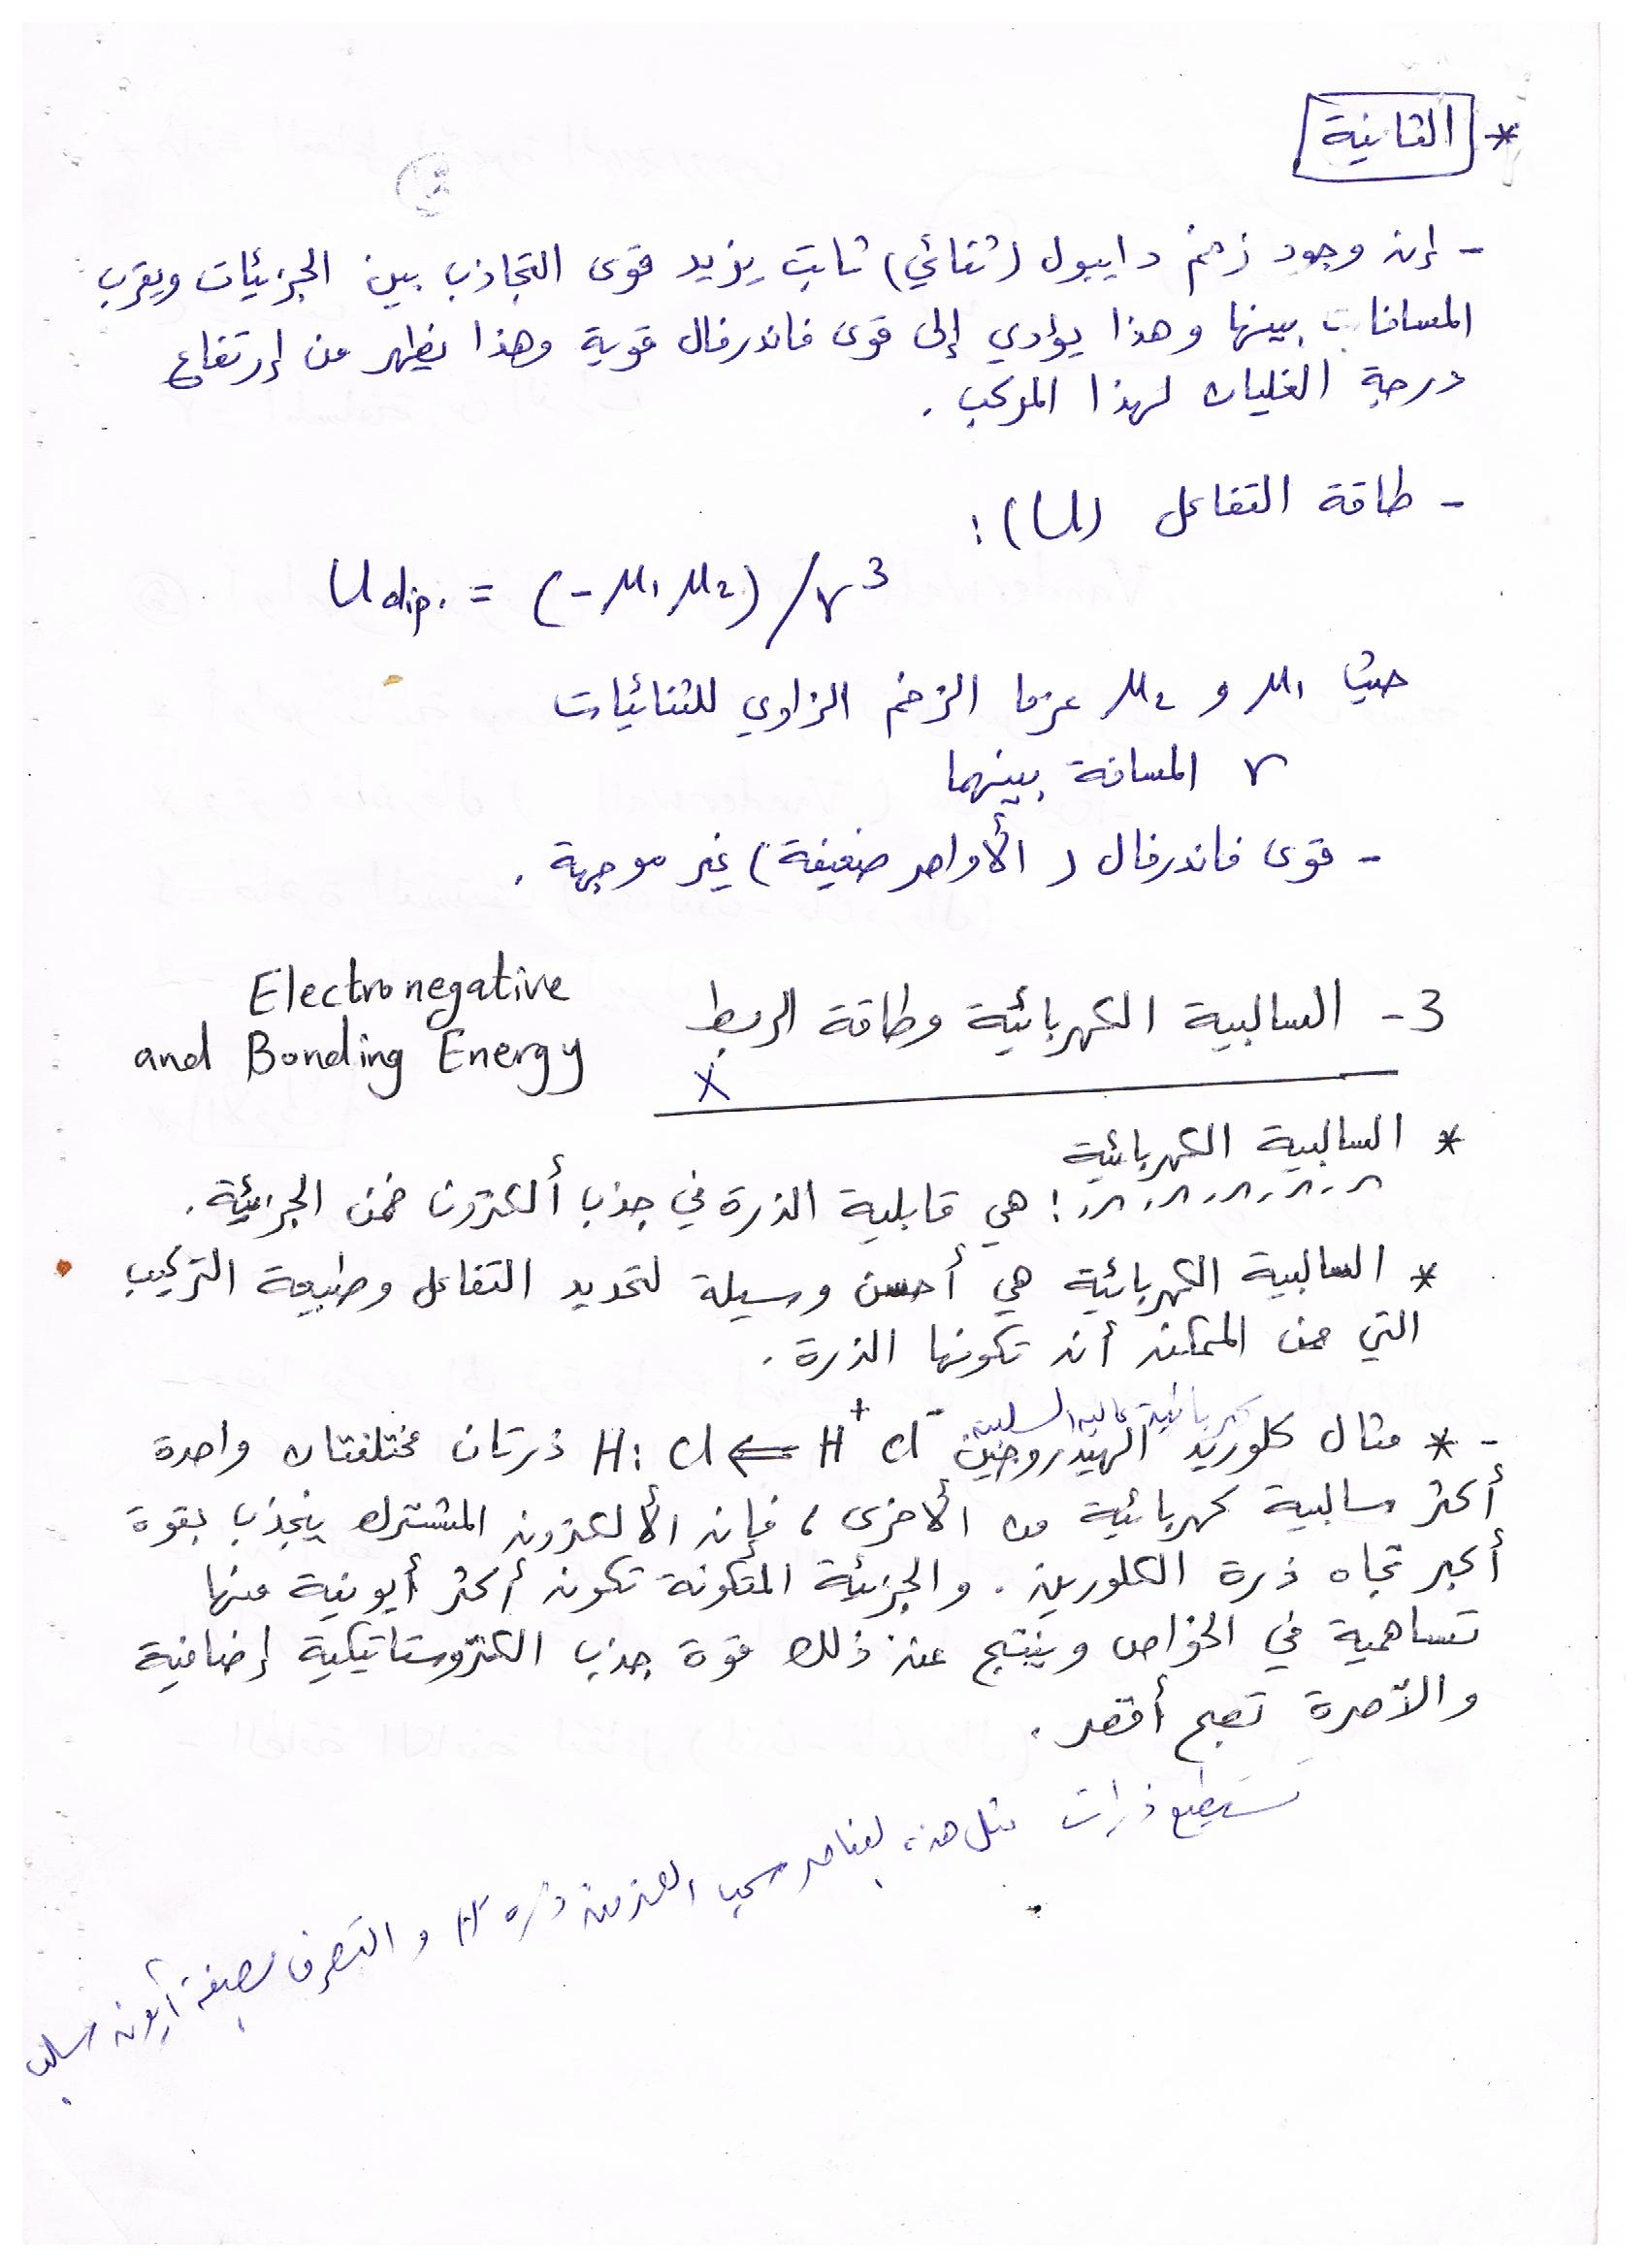 * الثانية
- إن وجود زخم دايبول (ثنائي) ثابت يزيد قوى التجاذب بين الجزيئات ويقرب
المسافات بينها وهذا يؤدي إلى قوى فاندرفال قوية وهذا يظهر من إرتفاع
درجة الغليان لهذا المركب .
- طاقة التفاعل (U) :
U dip. = (-μ₁ μ₂) / r³
حيث μ₁ و μ₂ عزما الزخم الزاوي للثنائيات
r المسافة بينهما
- قوى فاندرفال (الأواصر ضعيفة) غير موجهة .
3- السالبية الكهربائية وطاقة الربط Electronegative
and Bonding Energy
X
* السالبية الكهربائية
: هي قابلية الذرة في جذب ألكترون ضمن الجزيئة .
* السالبية الكهربائية هي أحسن وسيلة لتحديد التفاعل وطبيعة التركيب
التي من الممكن أن تكونها الذرة .
كهربائية عالية السلبية
- * مثال كلوريد الهيدروجين H⁺ Cl⁻ ⇐ H : Cl ذرتان مختلفتان واحدة
أكثر سالبية كهربائية من الأخرى ، فإن الألكترون المشترك ينجذب بقوة
أكبر تجاه ذرة الكلورين . والجزيئة المتكونة تكون أكثر أيونية منها
تساهمية في الخواص وينتج عن ذلك قوة جذب الكتروستاتيكية إضافية
والآصرة تصبح أقصر .
تستطيع ذرات مثل هذه العناصر سحب من ذرة H و التصرف بصيغة أيون سالب